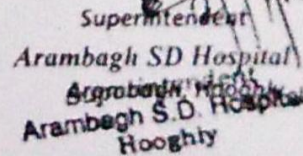 Superintendent
Arambagh SD Hospital
Arambagh, Hooghly
Superintendent
Arambagh S.D. Hospital
Hooghly